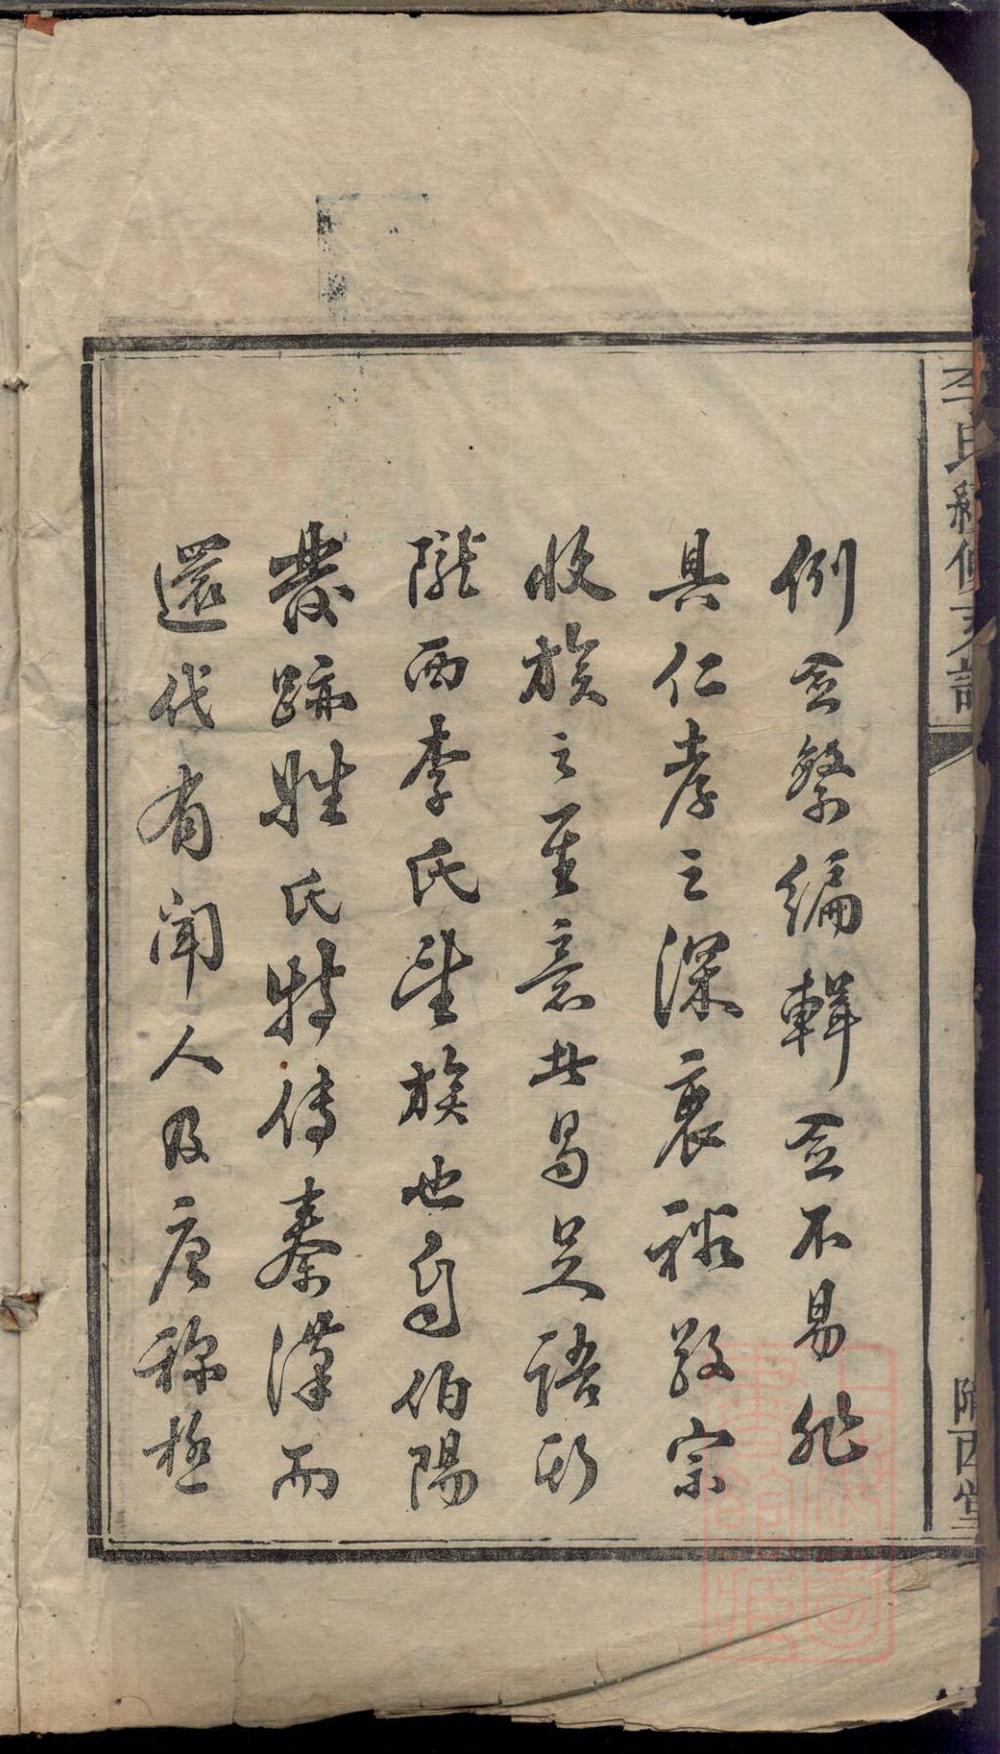 李氏續修支譜
隴西堂
例愈繁編輯愈不易非
具仁孝之深衷裕敬宗
收族之至意其曷足語斯
隴西李氏望族也自伯陽
發跡姓氏特傳秦漢而
還代有聞人及唐稱極